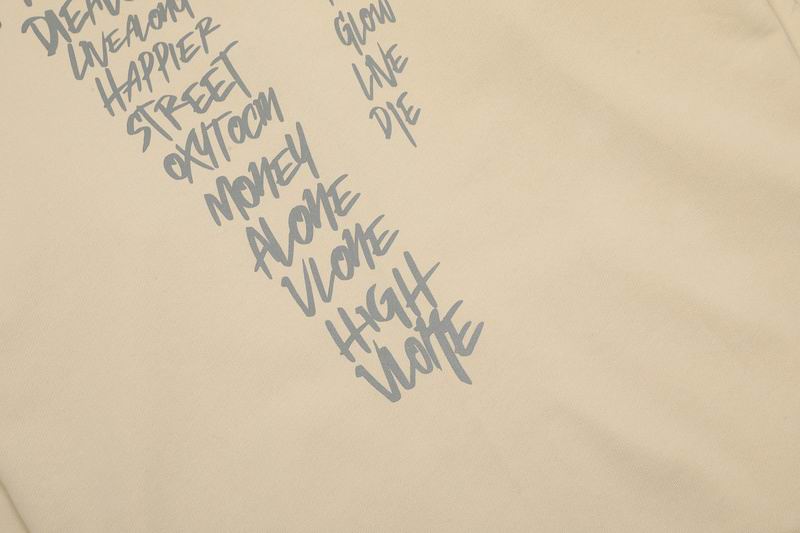 LIVEALONY
HAPPIER
STREET
OXYTOCIN
MONEY
ALONE
VLONE
HIGH
VLONE
GLOW
LIVE
DIE